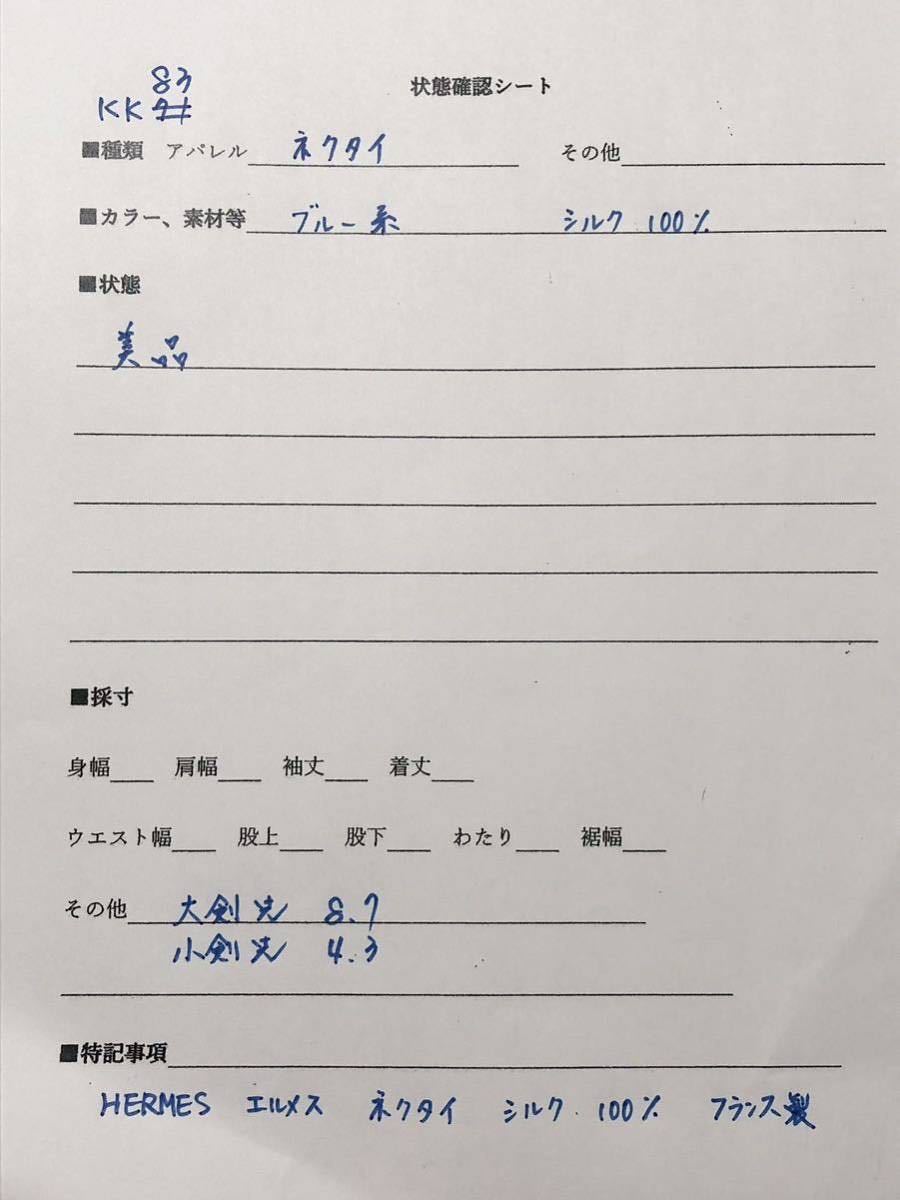 83
KK
状態確認シート
■種類 アパレル ネクタイ その他
■カラー、素材等 ブルー系 シルク 100%
■状態
美品
■採寸
身幅 肩幅 袖丈 着丈
ウエスト幅 股上 股下 わたり 裾幅
その他 大剣先 8.7
小剣先 4.3
■特記事項
HERMES エルメス ネクタイ シルク 100% フランス製